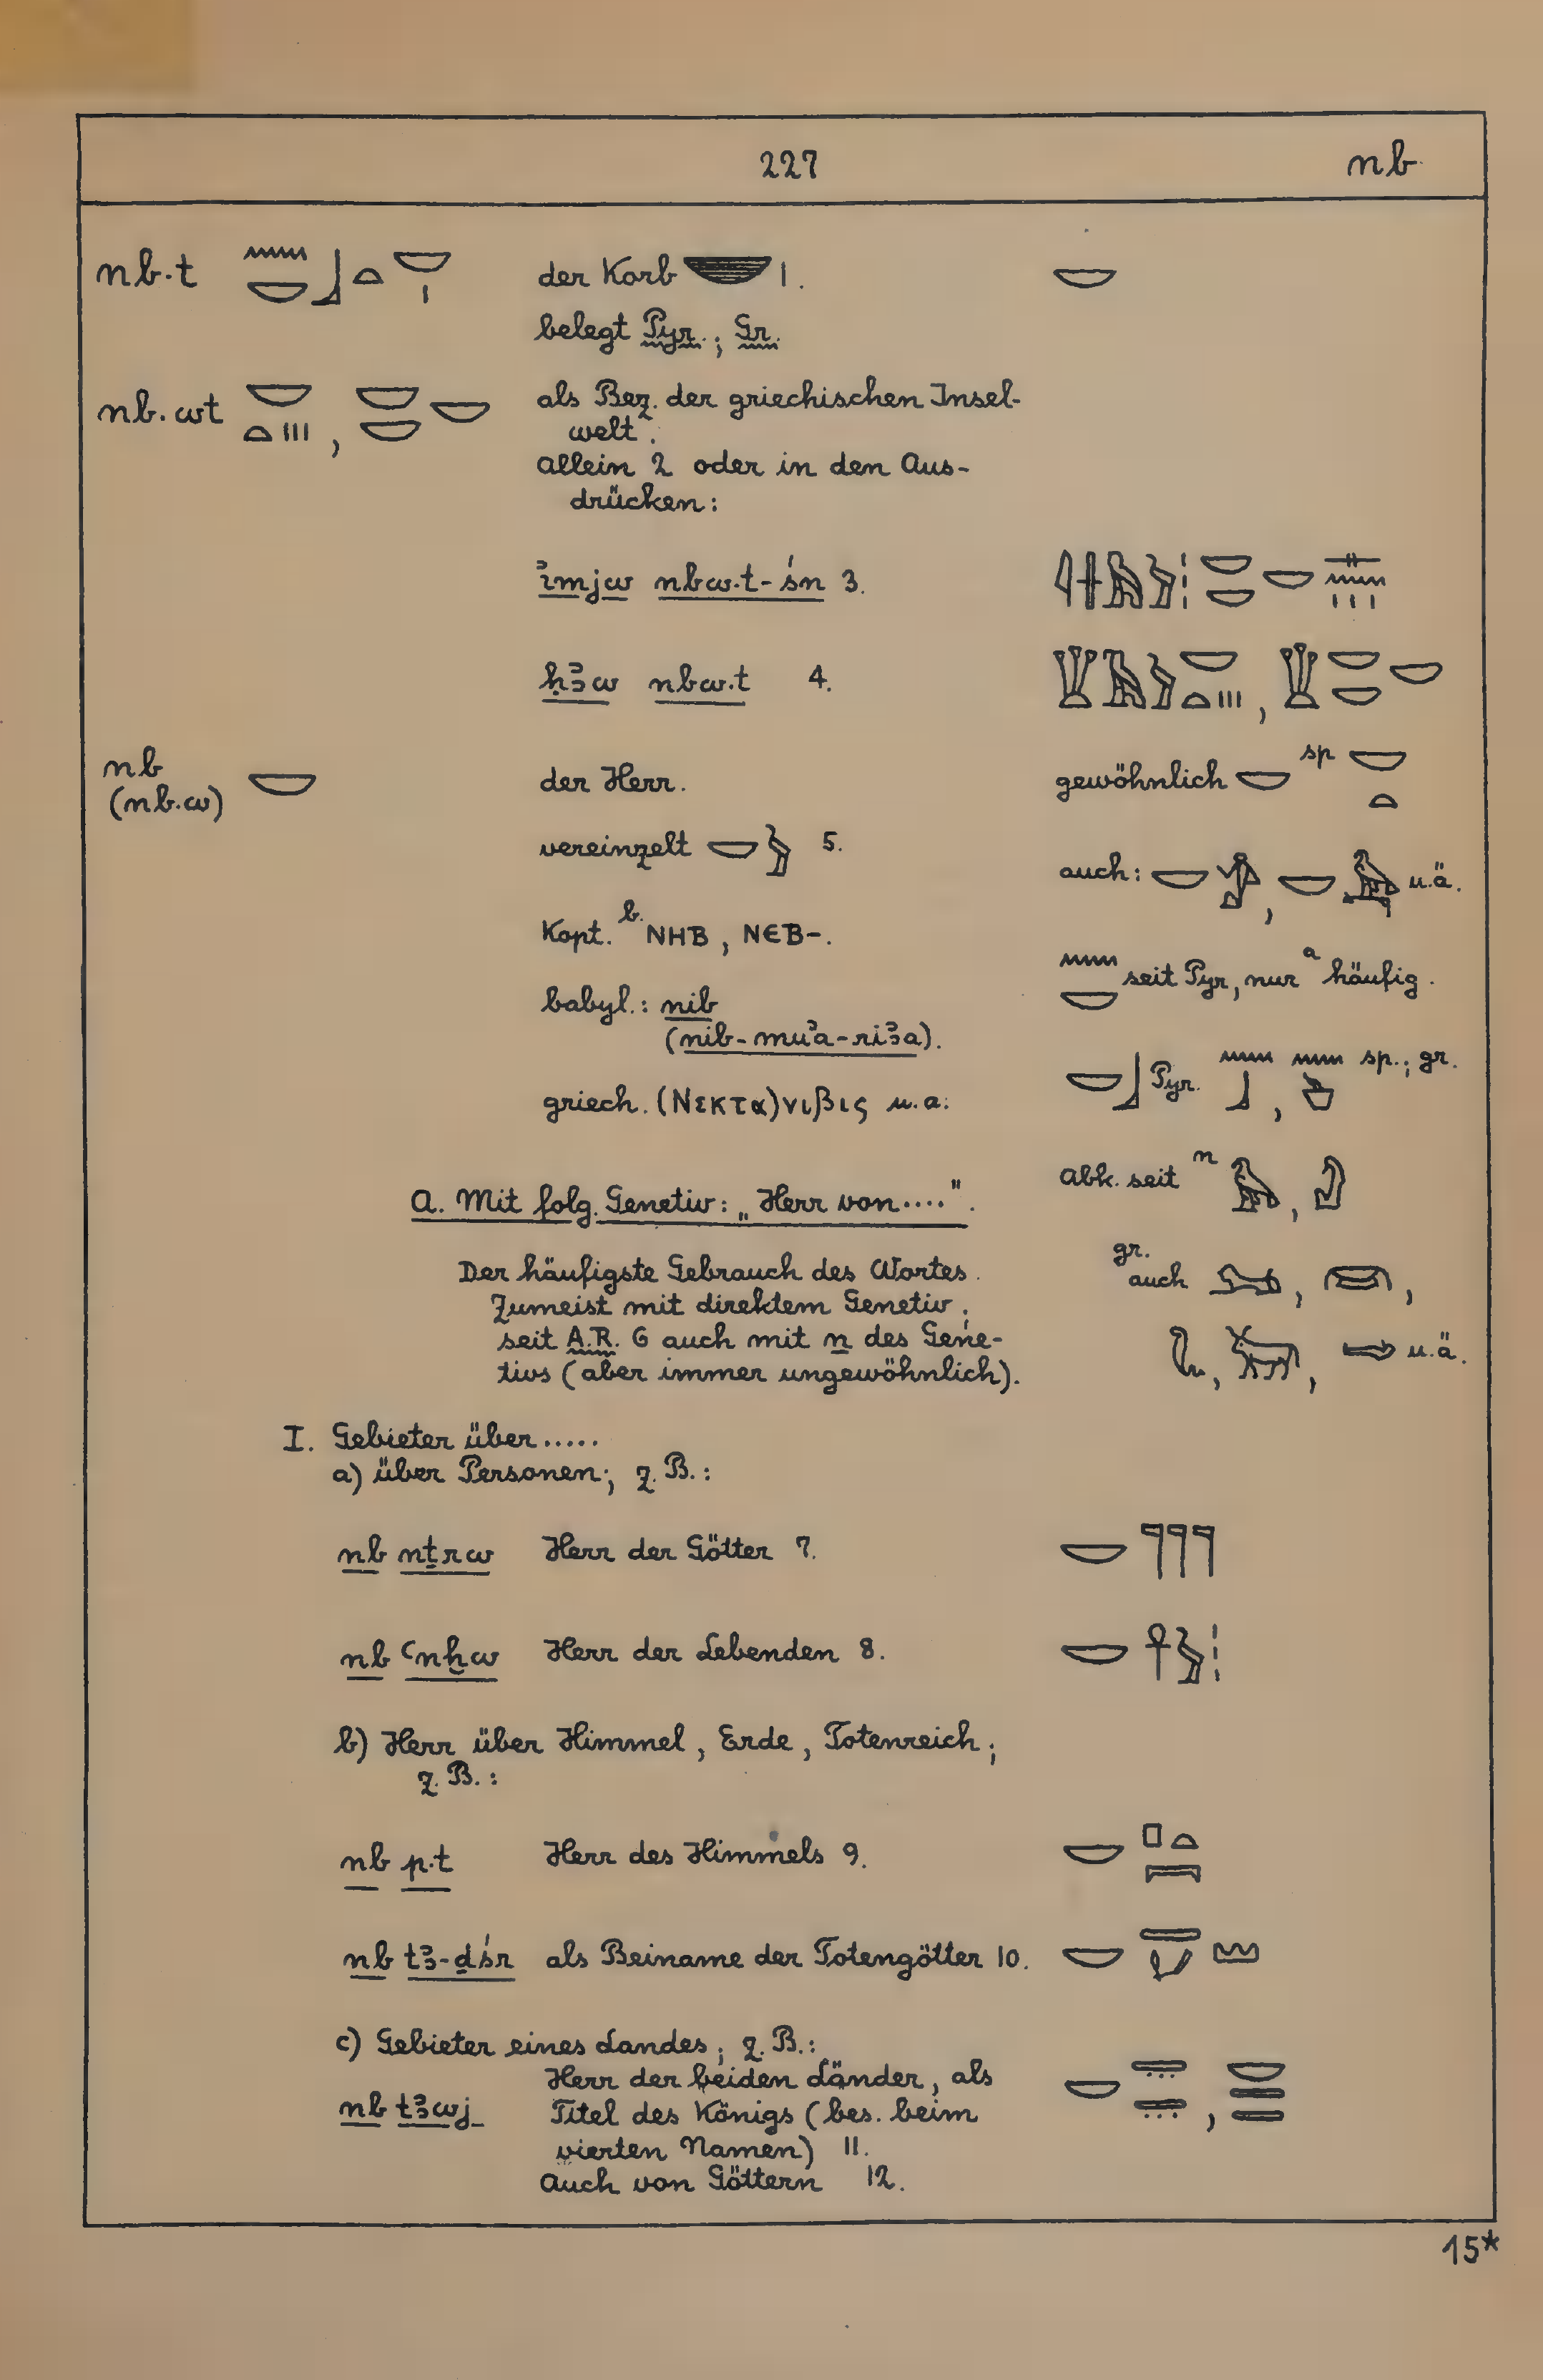 227
nb
nb.t
der Korb 1.
belegt Pyr.; Gr.
nb.wt
als Bez. der griechischen Insel-
welt.
allein 2 oder in den Aus-
drücken:
ꜣimjw nbw.t-śn 3.
ḥꜣw nbw.t 4.
nb
(nb.w)
der Herr.
gewöhnlich sp
vereinzelt 5.
auch: , u.ä.
Kopt. b. ⲚⲎⲂ, ⲚⲈⲂ-.
seit Pyr, nur a häufig.
babyl.: nib
(nib-muʾa-riꜣa).
Pyr. , sp.; gr.
griech. (Νεκτα)νιβις u.a.
Abk. seit n ,
A. Mit folg. Genetiv: „Herr von....".
Der häufigste Gebrauch des Wortes.
Zumeist mit direktem Genetiv;
seit A.R. 6 auch mit n des Gene-
tivs (aber immer ungewöhnlich).
gr.
auch , ,
, , u.ä.
I. Gebieter über.....
a) über Personen; z.B.:
nb nṯrw Herr der Götter 7.
nb ꜥnḫw Herr der Lebenden 8.
b) Herr über Himmel, Erde, Totenreich;
z.B.:
nb p.t Herr des Himmels 9.
nb tꜣ-ḏśr als Beiname der Totengötter 10.
c) Gebieter eines Landes; z.B.:
nb tꜣwj Herr der beiden Länder, als
Titel des Königs (bes. beim
vierten Namen) 11.
Auch von Göttern 12.
15*